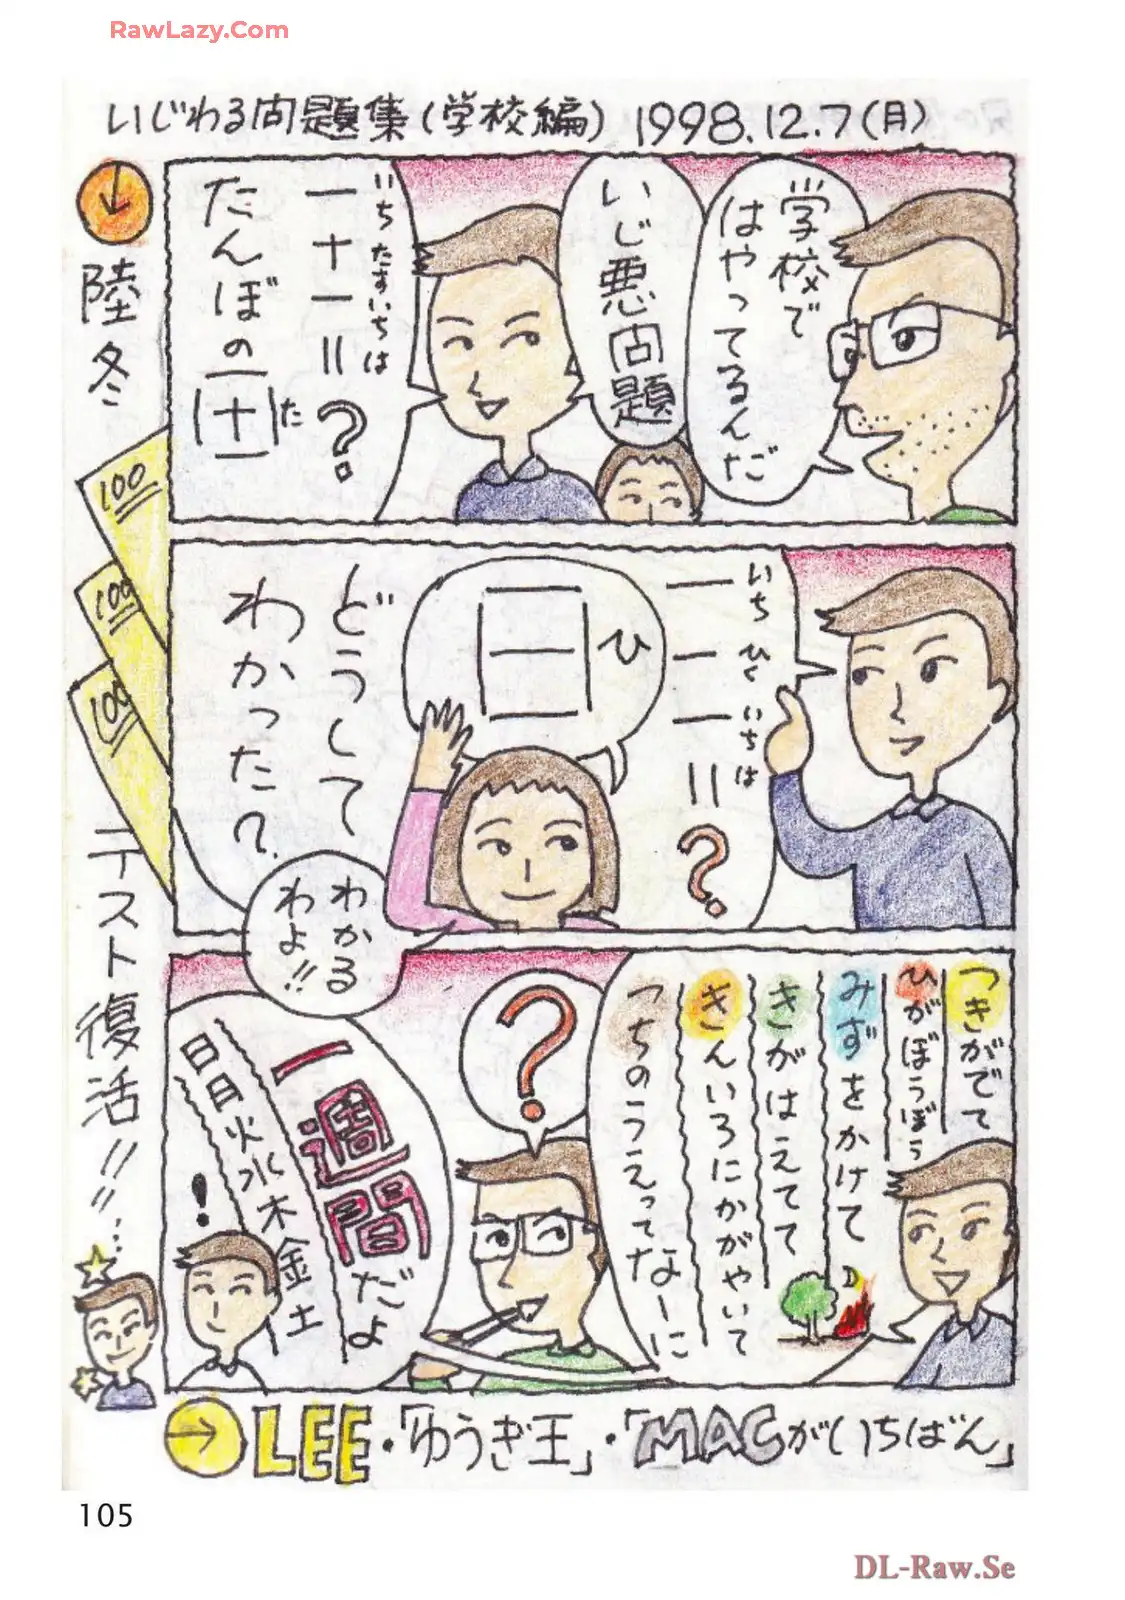 RawLazy.Com
いじわる問題集(学校編) 1998.12.7(月)
学校で
はやってるんだ
いじ悪問題
いち たす いちは
一十一=?
たんぼの
田
た
陸冬
100
100
100
テスト復活!!…
いち ひく いちは
一一一=?
ひ
日
どうして
わかった?
わかる
わよ!!
つきがでて
ひがぼうぼう
みずをかけて
きがはえてて
きんいろにかがやいて
つちのうえってなーに
?
一週間だよ
日月火水木金土
!
LEE・「ゆうぎ王」・「MACがいちばん」
105
DL-Raw.Se